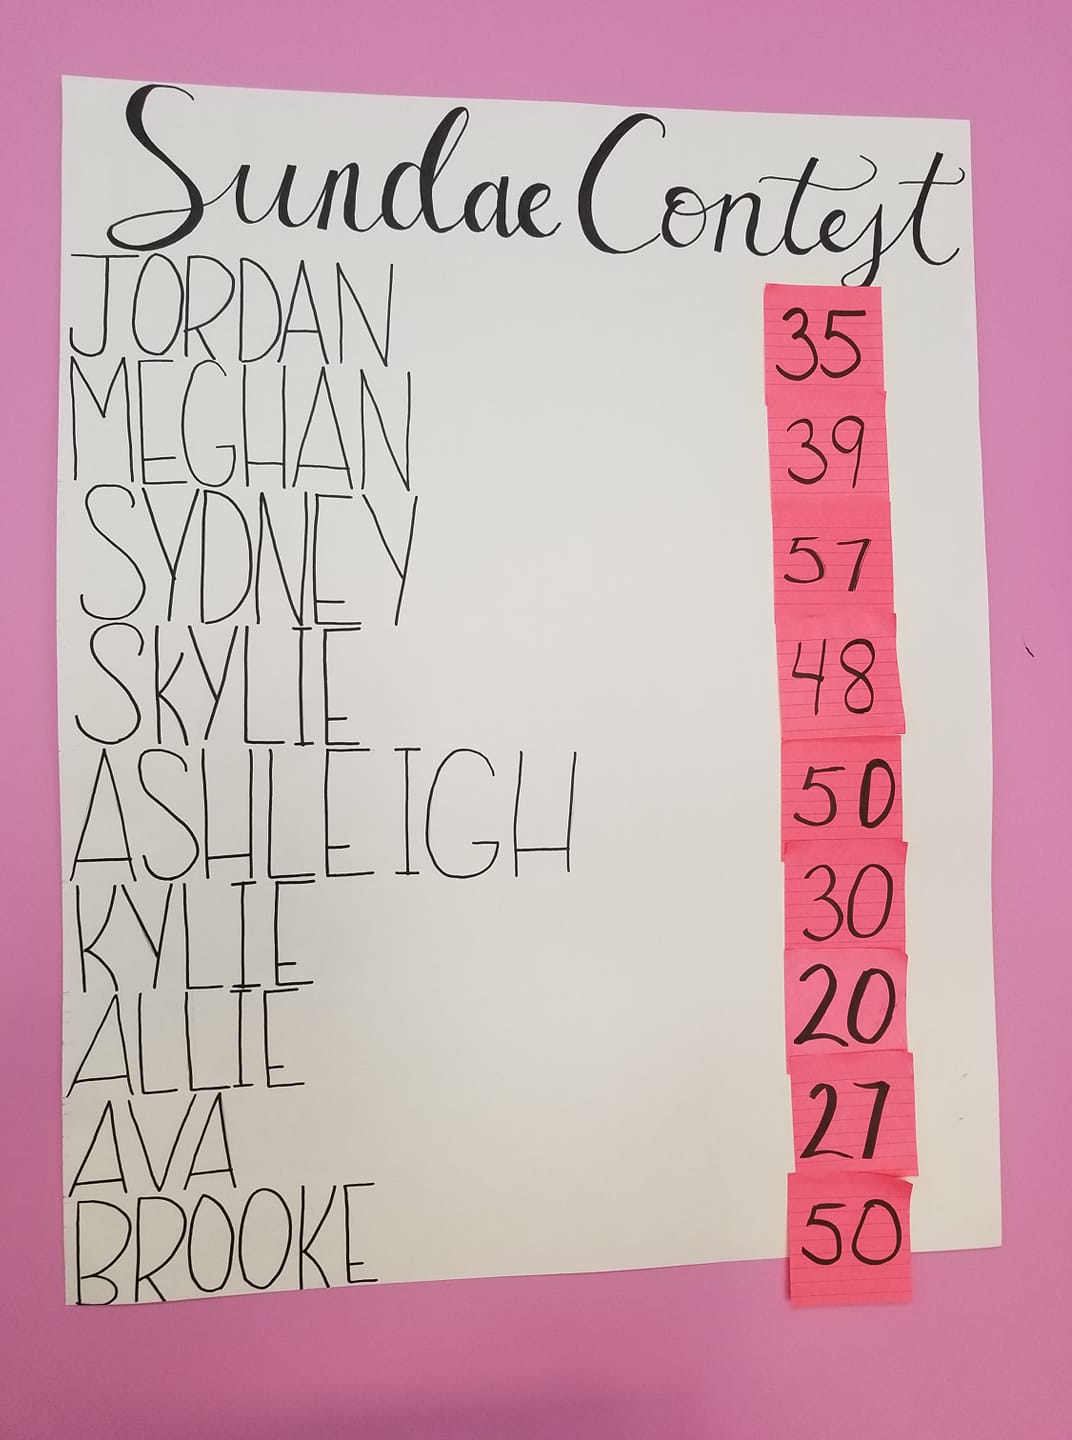 Sundae Contest
JORDAN 35
MEGHAN 39
SYDNEY 57
SKYLIE 48
ASHLEIGH 50
KYLIE 30
ALLIE 20
AVA 27
BROOKE 50